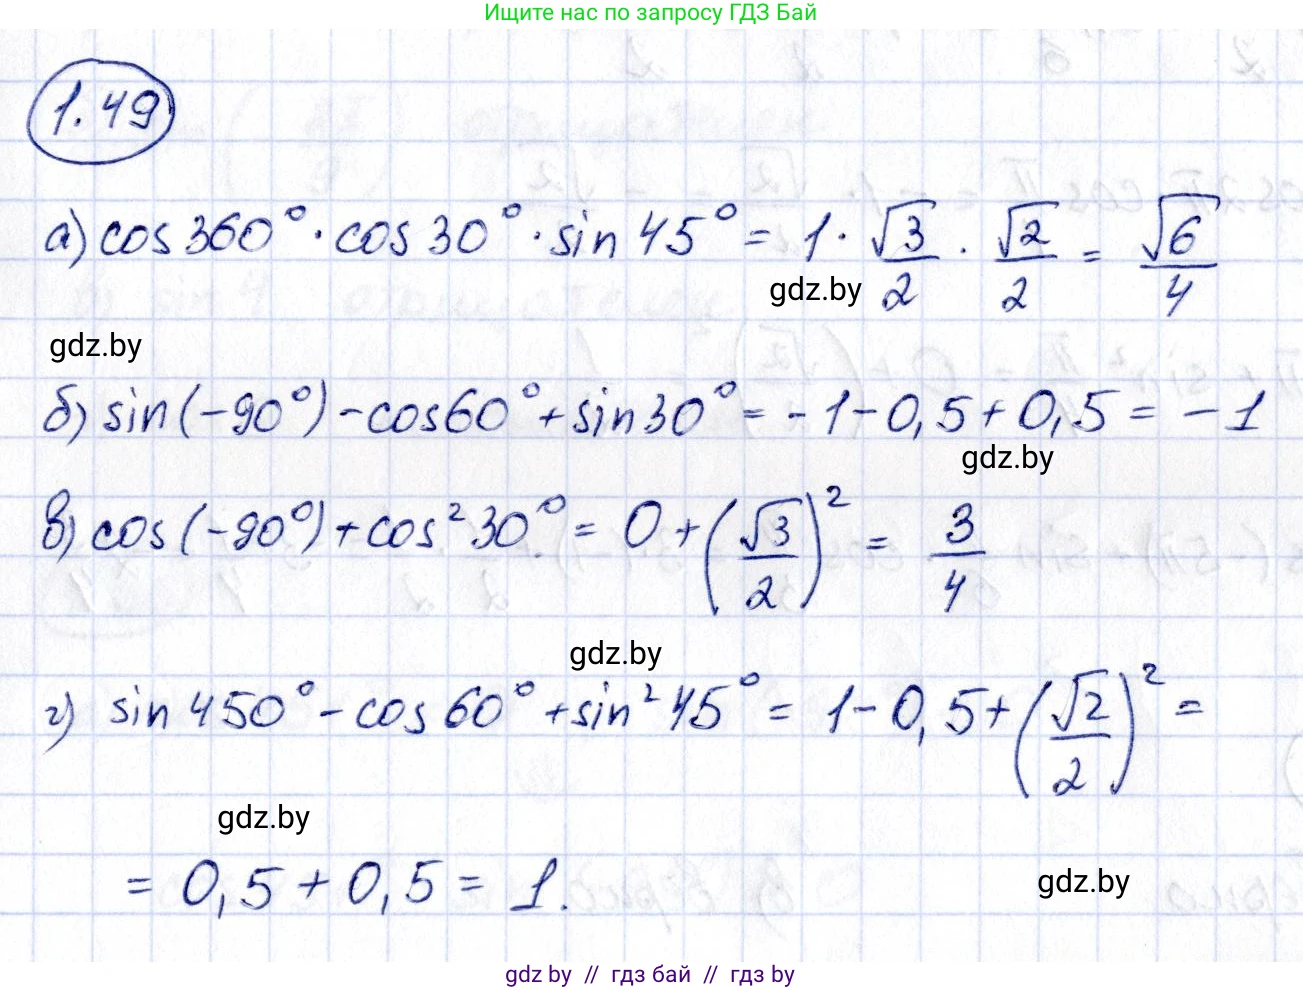 Ищите нас по запросу ГДЗ Бай
1.49
а) cos 360° · cos 30° · sin 45° = 1 · √3/2 · √2/2 = √6/4
gdz.by
gdz.by
б) sin(-90°) - cos60° + sin30° = -1 - 0,5 + 0,5 = -1
gdz.by
в) cos(-90°) + cos²30° = 0 + (√3/2)² = 3/4
gdz.by
г) sin 450° - cos 60° + sin² 45° = 1 - 0,5 + (√2/2)² =
gdz.by
= 0,5 + 0,5 = 1.
gdz.by
gdz by // гдз бай // гдз by